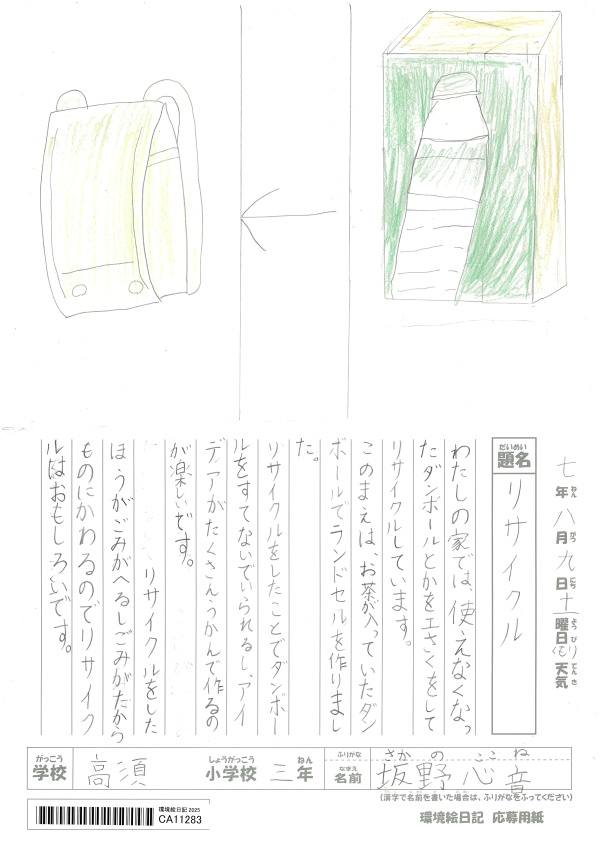 七年八月九日土曜日(くもり)天気
ねん がつ にち ようび てんき
だいめい
題名 リサイクル
わたしの家では、使えなくなっ
たダンボールとかをエさくをして
リサイクルしています。
このまえは、お茶が入っていたダン
ボールでランドセルを作りまし
た。
リサイクルをしたことでダンボー
ルをすてないでいられるし、アイ
デアがたくさんうかんで作るの
が楽しいです。
リサイクルをした
ほうがごみがへるしごみがだから
ものにかわるのでリサイク
ルはおもしろいです。
がっこう しょうがっこう ねん ふりがな さかの ここね
学校 高須 小学校 三年 なまえ 名前 坂野 心音
(漢字で名前を書いた場合は、ふりがなをふってください)
環境絵日記 2025
CA11283
環境絵日記 応募用紙